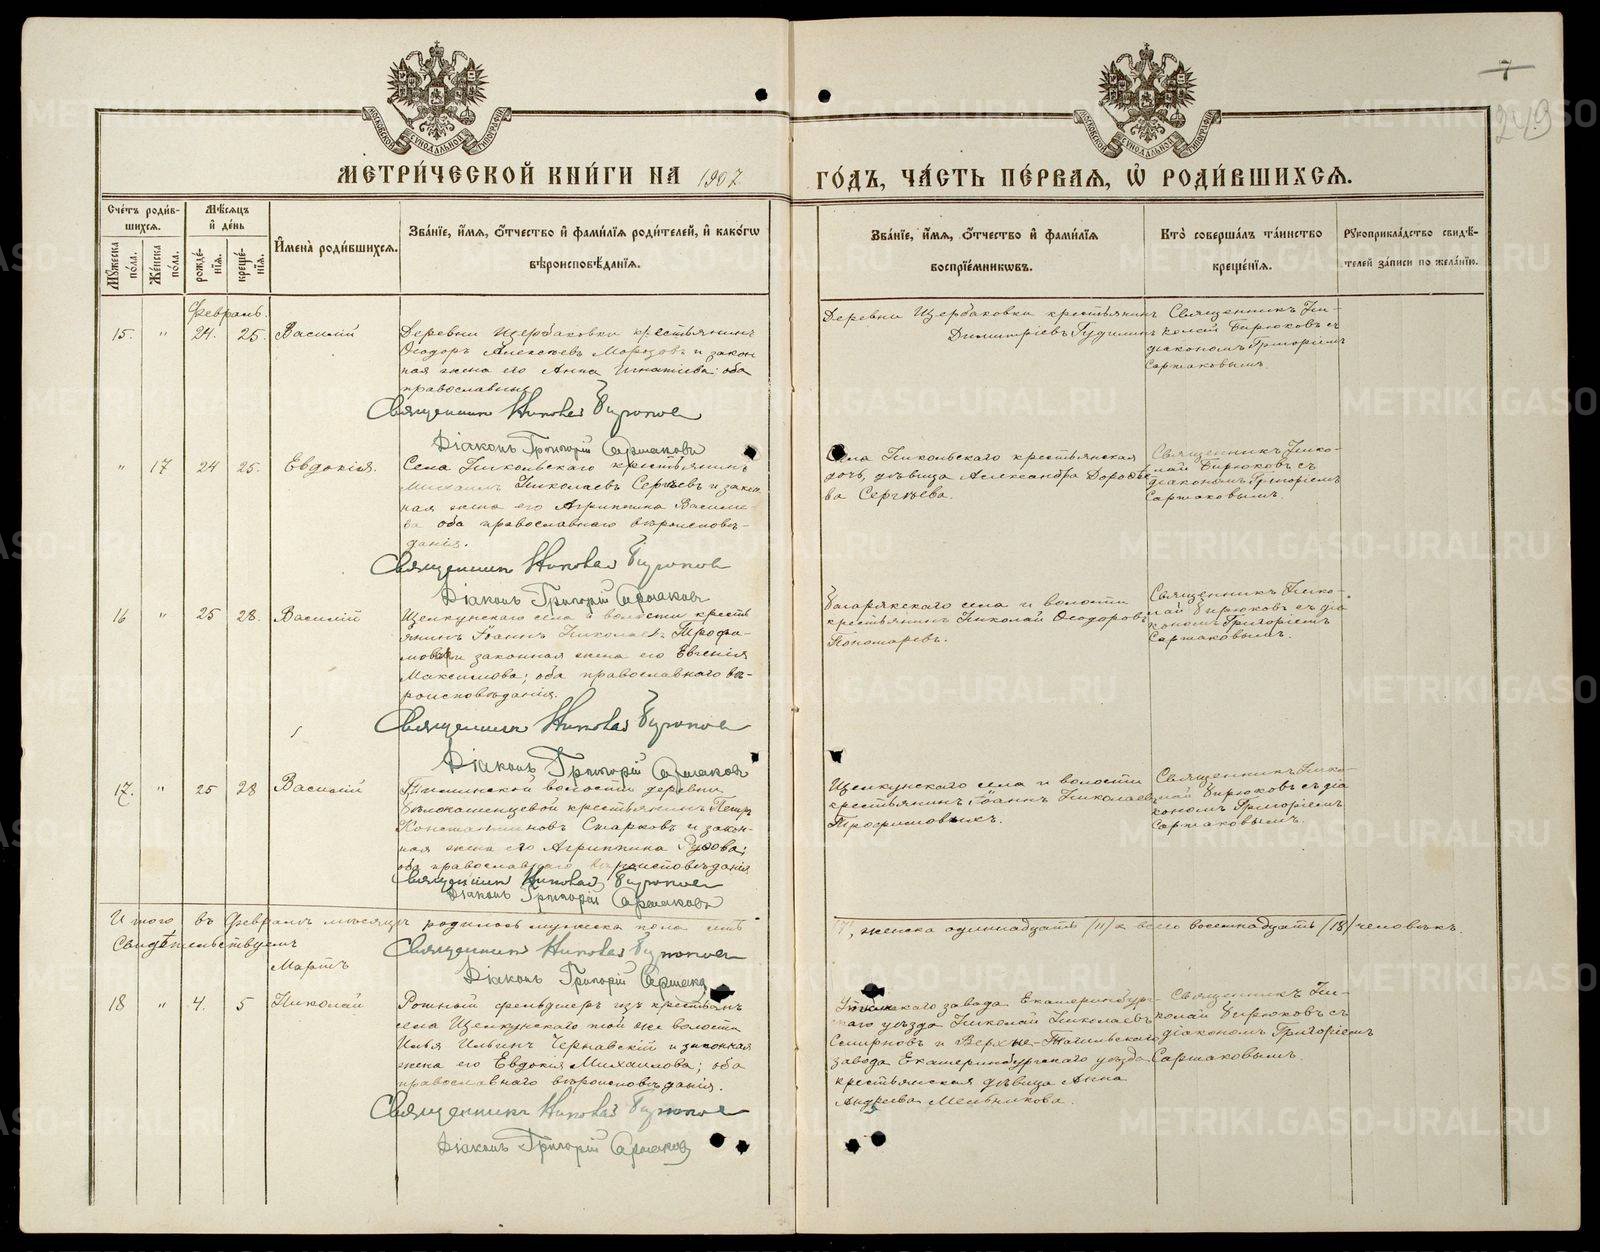 7
249
МОСКОВСКОЙ СѴНОДАЛЬНОЙ ТИПОГРАФІИ
МОСКОВСКОЙ СѴНОДАЛЬНОЙ ТИПОГРАФІИ
МЕТРИ́ЧЕСКОЙ КНИ́ГИ НА 1907
ГО́ДЪ, ЧА́СТЬ ПЕ́РВАЯ, Ѡ РОДИ́ВШИХСѦ.
Сче́тъ роди́в-
шихсѧ.
Мꙋ́жеска по́ла.
Же́нска по́ла.
Мѣ́сѧцъ
и҆ де́нь
рожде́-
нїѧ.
креще́-
нїѧ.
И҆мена̀ роди́вшихсѧ.
Зва́нїе, и҆́мѧ, ѻ҆́тчество и҆ фами́лїѧ роди́телей, и҆ како́гѡ
вѣроисповѣ́данїѧ.
Зва́нїе, и҆́мѧ, ѻ҆́тчество и҆ фами́лїѧ
воспрїе́мникѡвъ.
Кто̀ соверша́лъ та́инство
креще́нїѧ.
Рꙋкоприкла́дство свидѣ́-
телей за́писи по жела́нїю.
Февраль.
15. " 24. 25. Василій
Деревни Щербаковки крестьянинъ
Ѳеодоръ Алексѣевъ Морозовъ и закон
ная жена его Анна Игнатіева; оба
православны
Священникъ Николай Бирюковъ
Діаконъ Григорій Саржаковъ
Деревни Щербаковки крестьянинъ
Димитріевъ Гудилинъ
Священникъ Ни-
колай Бирюковъ съ
діакономъ Григоріемъ
Саржаковымъ.
" 17 24 25. Евдокія.
Села Никольскаго крестьянинъ
Михаилъ Николаевъ Сергѣевъ и закон
ная жена его Агриппина Василіе-
ва оба православнаго вѣроисповѣ-
данія.
Священникъ Николай Бирюковъ
Діаконъ Григорій Саржаковъ
Села Никольскаго крестьянская
дочь, дѣвица Александра Дороѳѣе
ва Сергѣева.
Священникъ Нико-
лай Бирюковъ съ
діакономъ Григоріемъ
Саржаковымъ.
16 " 25 28. Василій
Щелкунскаго села и волости кресть
янинъ Іоаннъ Николаевъ Трофи-
мовъ и законная жена его Евгенія
Максимова; оба православнаго вѣ-
роисповѣданія.
Священникъ Николай Бирюковъ
Діаконъ Григорій Саржаковъ
Багарякскаго села и волости
крестьянинъ Николай Ѳеодоровъ
Пономаревъ.
Священникъ Нико-
лай Бирюковъ съ діа
кономъ Григоріемъ
Саржаковымъ.
17. " 25 28 Василій
волости деревни
крестьянинъ Петръ
Константиновъ Старковъ и закон-
ная жена его Агриппина
оба православнаго вѣроисповѣданія
Священникъ Николай Бирюковъ
Діаконъ Григорій Саржаковъ
Щелкунскаго села и волости
крестьянинъ Іоаннъ Николаевъ
Трофимовыхъ.
Священникъ Нико-
лай Бирюковъ съ діа
кономъ Григоріемъ
Саржаковымъ.
Итого въ Февралѣ мѣсяцѣ родилось мужска пола семь
/7/, женска одиннадцать /11/ а всего восемнадцать /18/ человѣкъ.
Свидѣтельствуемъ
Священникъ Николай Бирюковъ
Діаконъ Григорій Саржаковъ
Мартъ
18 " 4. 5 Николай
Ротный фельдшеръ изъ крестьянъ
села Щелкунскаго той же волости
Илья Ильинъ Чернавскій и законная
жена его Евдокія Михаилова; оба
православнаго вѣроисповѣданія.
Священникъ Николай Бирюковъ
Діаконъ Григорій Саржаковъ
завода Екатеринбург-
скаго уѣзда Николай Николаевъ
Смирновъ и Верхне-Тагильскаго
завода Екатеринбургскаго уѣзда
крестьянская дѣвица Анна
Андреева Мельникова.
Священникъ Ни-
колай Бирюковъ съ
діакономъ Григоріемъ
Саржаковымъ.
METRIKI.GASO-URAL.RU